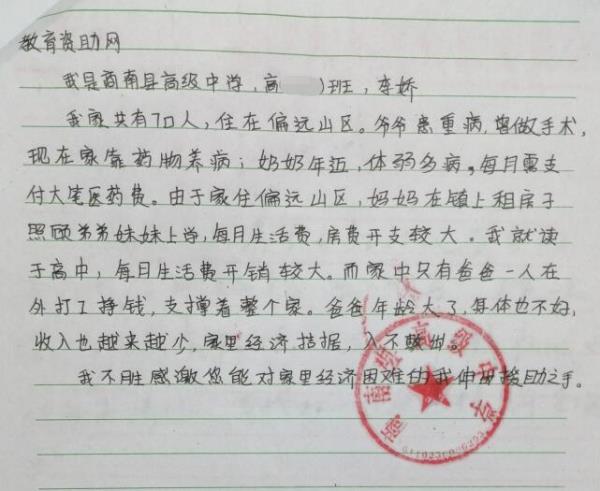 教育资助网
我是商南县高级中学,高 )班,李娇
我家共有70人,住在偏远山区。爷爷患重病,曾做手术,
现在家靠药物养病;奶奶年迈,体弱多病。每月需支
付大笔医药费。由于家住偏远山区,妈妈在镇上租房子
照顾弟弟妹妹上学,每月生活费,房费开支较大。我就读
于高中,每日生活费开销较大。而家中只有爸爸一人在
外打工挣钱,支撑着整个家。爸爸年龄大了,身体也不好,
收入也越来越少,家里经济拮据,入不敷出。
我不胜感激您能对家里经济困难的我伸出援助之手。
商南县高级中学